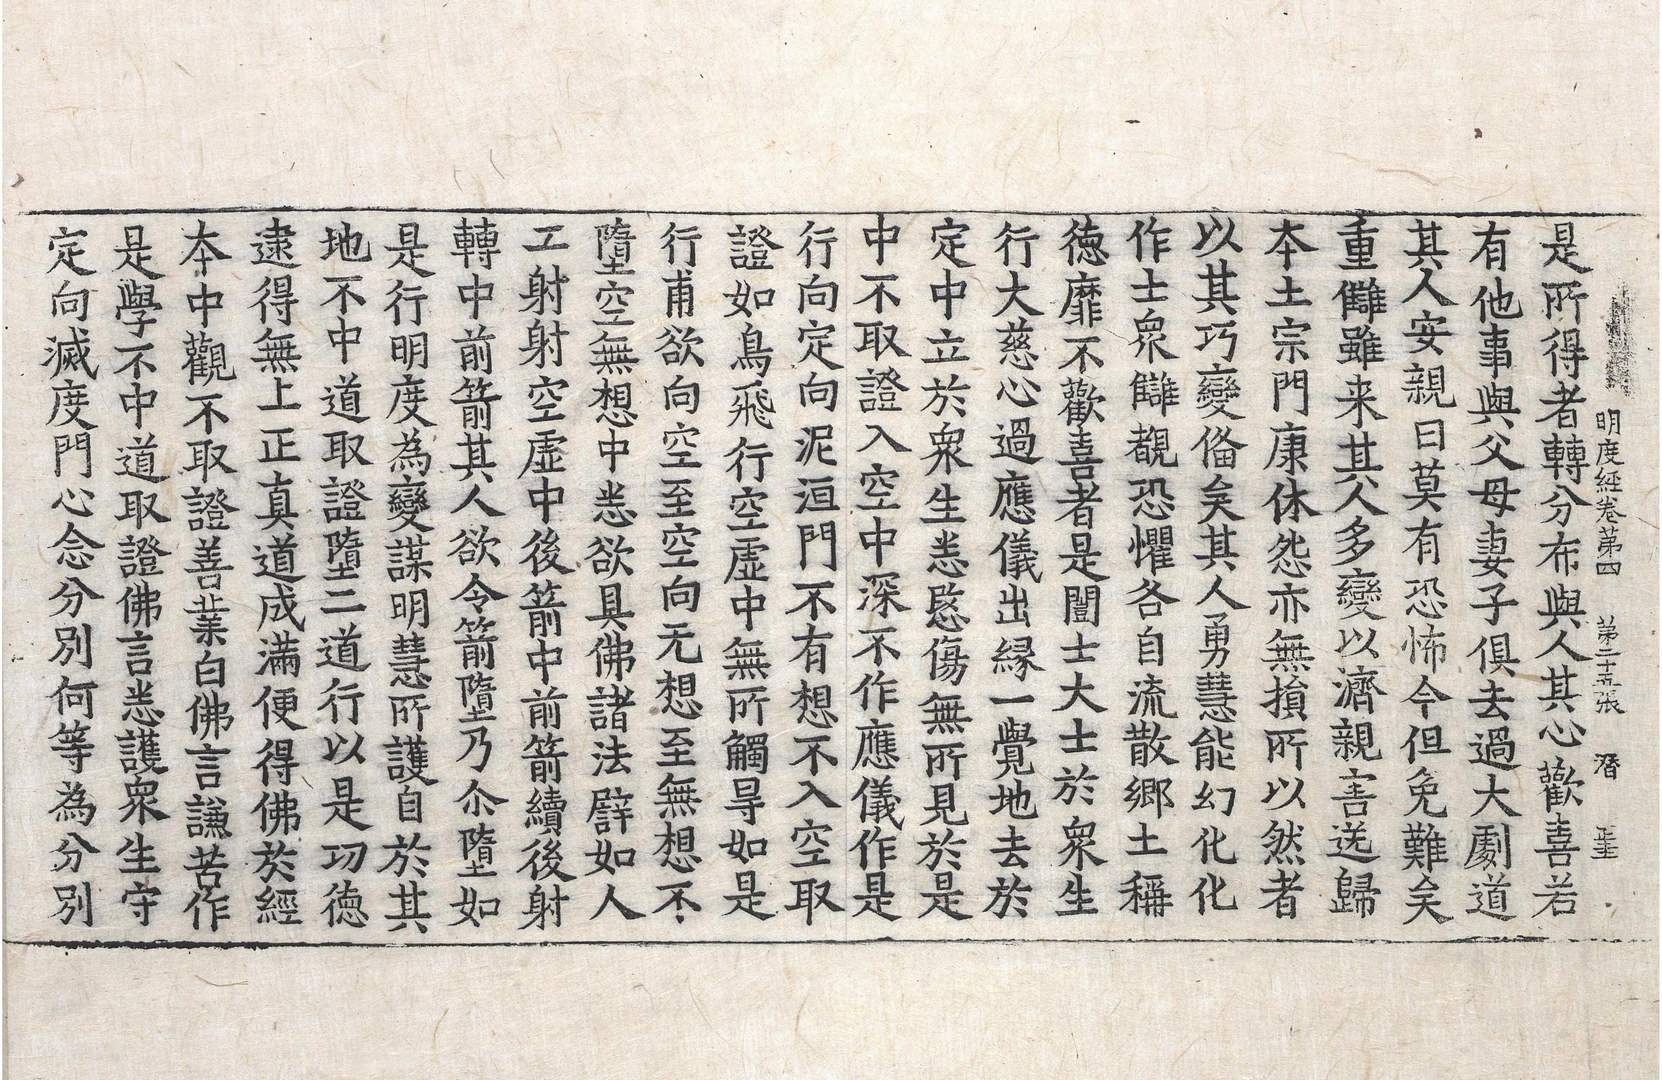 明度経卷第四 第二十五張 潛
是所得者轉分布與人其心歡喜若
有他事與父母妻子俱去過大劇道
其人安親曰莫有恐怖今但免難矣
重讎雖来其人多變以濟親害送歸
本土宗門康休怨亦無損所以然者
以其巧變俻矣其人勇慧能幻化化
作士衆讎覩恐懼各自流散鄉土稱
德靡不歡喜者是闓士大士於衆生
行大慈心過應儀出縁一覺地去於
定中立於衆生悉愍傷無所見於是
中不取證入空中深不作應儀作是
行向定向泥洹門不有想不入空取
證如鳥飛行空虛中無所觸㝵如是
行甫欲向空至空向无想至無想不
墮空無想中悉欲具佛諸法譬如人
工射射空虛中後箭中前箭續後射
轉中前箭其人欲令箭墮乃尒墮如
是行明度為變謀明慧所護自於其
地不中道取證墮二道行以是功德
逮得無上正真道成滿便得佛於經
本中觀不取證善業白佛言謙苦作
是學不中道取證佛言悉護衆生守
定向滅度門心念分別何等為分別